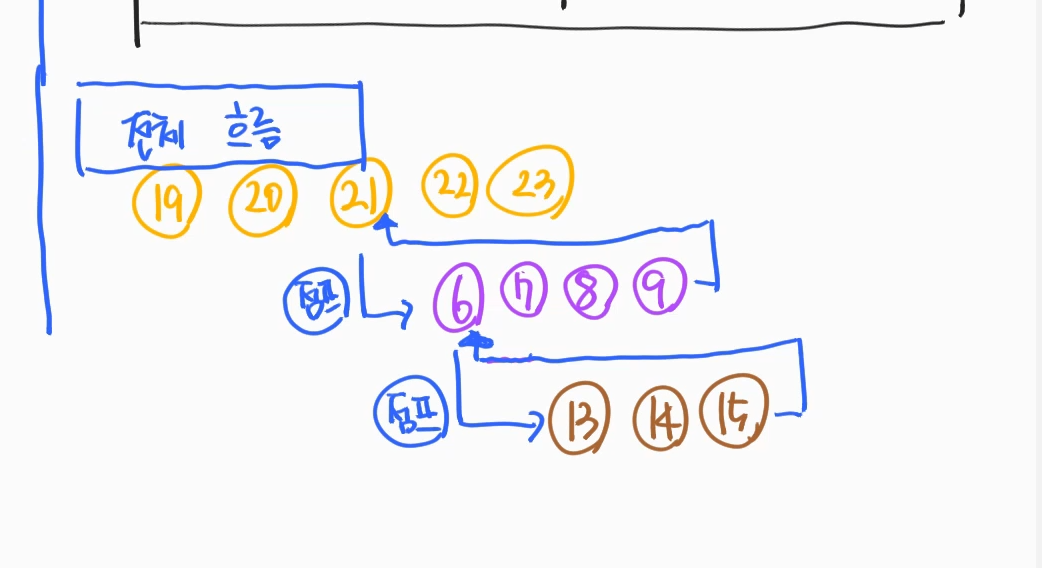 전체 흐름
19 20 21 22 23
점프 6 7 8 9
점프 13 14 15